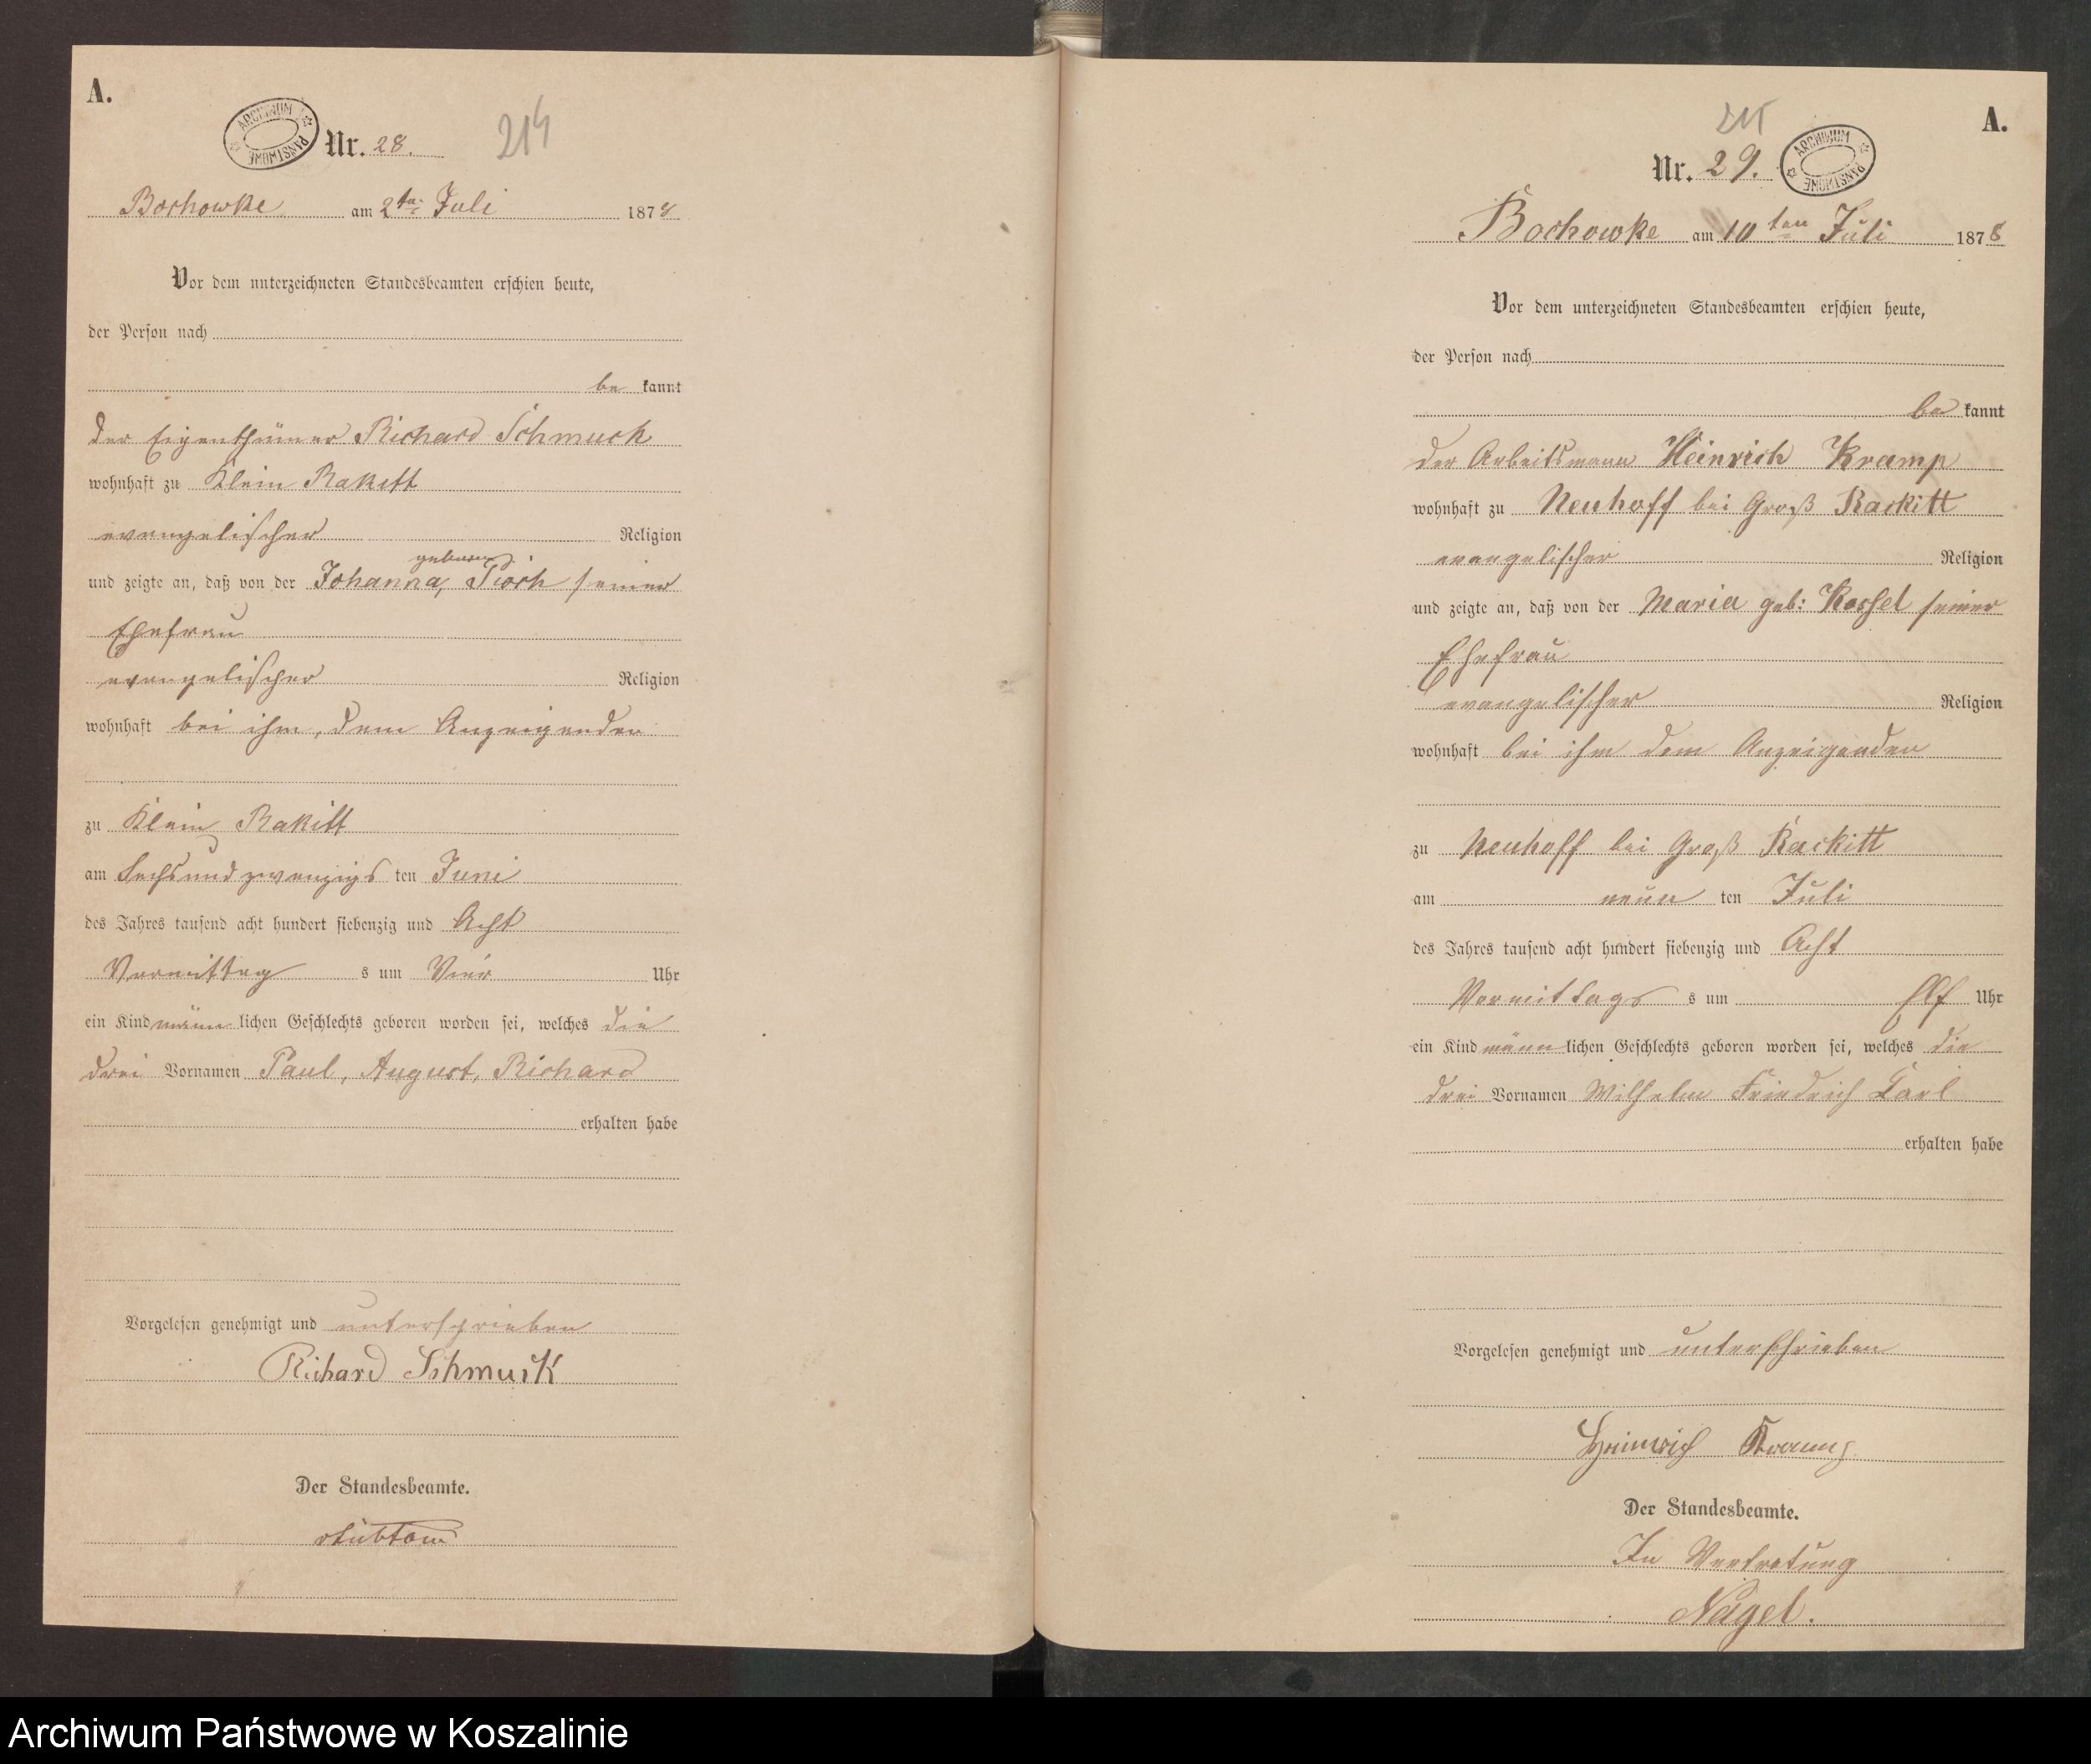 A.
ARCHIWUM PAŃSTWOWE
Nr. 28.
214
Bochowke am 2ten Juli 1878
Vor dem unterzeichneten Standesbeamten erschien heute,
der Person nach
be kannt
der Eigenthümer Richard Schmuck
wohnhaft zu Klein Rakitt
evangelischer Religion
geborene
und zeigte an, daß von der Johanna, Pioch seiner
Ehefrau
evangelischer Religion
wohnhaft bei ihm, dem Anzeigenden
zu Klein Rakitt
am Sechsundzwanzigs ten Juni
des Jahres tausend acht hundert siebenzig und Acht
Vormittag s um Vier Uhr
ein Kind männ lichen Geschlechts geboren worden sei, welches die
drei Vornamen Paul, August, Richard
erhalten habe
Vorgelesen genehmigt und unterschrieben
Richard Schmuck
Der Standesbeamte.
A.
215
Nr. 29.
ARCHIWUM PAŃSTWOWE
Bochowke am 10ten Juli 1878
Vor dem unterzeichneten Standesbeamten erschien heute,
der Person nach
be kannt
der Arbeitsmann Heinrich Kramp
wohnhaft zu Neuhoff bei Groß Rackitt
evangelischer Religion
und zeigte an, daß von der Maria geb: Kossel seiner
Ehefrau
evangelischer Religion
wohnhaft bei ihm dem Anzeigenden
zu Neuhoff bei Groß Rackitt
am neun ten Juli
des Jahres tausend acht hundert siebenzig und Acht
Vormittags s um Elf Uhr
ein Kind männ lichen Geschlechts geboren worden sei, welches die
drei Vornamen Wilhelm Friedrich Carl
erhalten habe
Vorgelesen genehmigt und unterschrieben
Heinrich Kramp
Der Standesbeamte.
In Vertretung
Nagel.
Archiwum Państwowe w Koszalinie